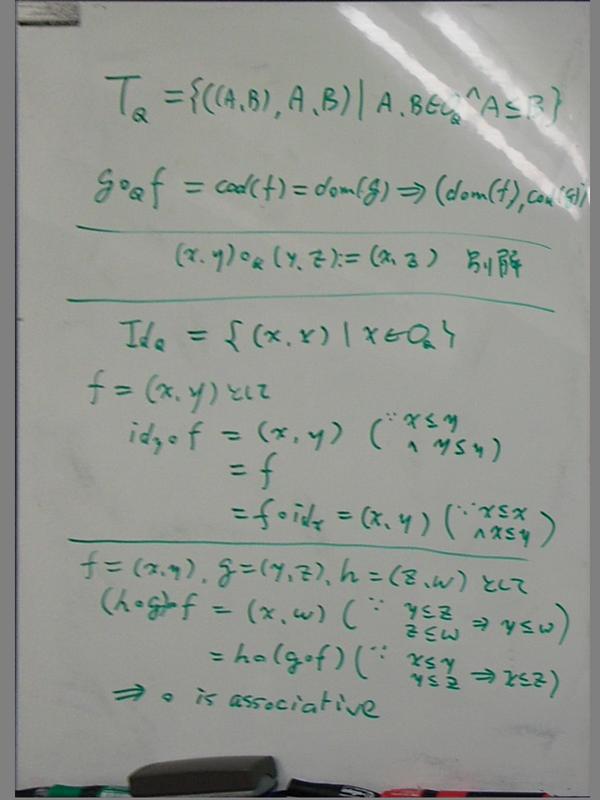 T_Q = {((A,B), A, B) | A, B ∈ O_Q ∧ A ≤ B}
g∘_Q f = cod(f) = dom(g) ⇒ (dom(f), cod(g))
(x, y)∘_Q (y, z) := (x, z) 別解
Id_Q = {(x, x) | x ∈ O_Q}
f = (x, y) として
id_y∘f = (x, y) (∵ x≤y
∧ y≤y)
= f
= f∘id_x = (x, y) (∵ x≤x
∧ x≤y)
f = (x, y), g = (y, z), h = (z, w) として
(h∘g)∘f = (x, w) (∵ y≤z
z≤w ⇒ y≤w)
= h∘(g∘f) (∵ x≤y
y≤z ⇒ x≤z)
⇒ ∘ is associative